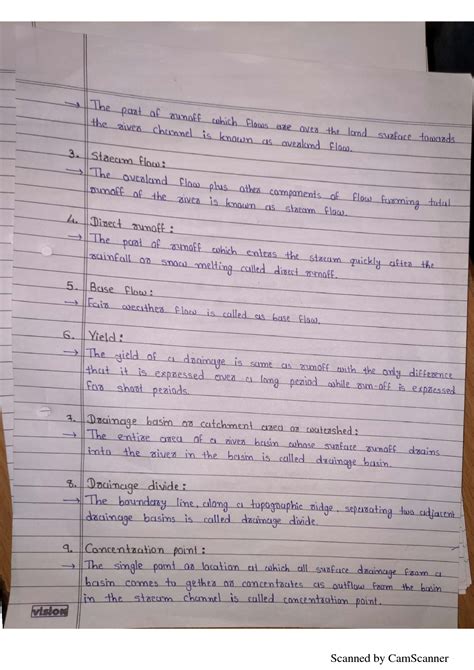 → The part of runoff which flows are over the land surface towards
the river channel is known as overland flow.
3. Stream flow:
→ The overland flow plus other components of flow forming total
runoff of the river is known as stream flow.
4. Direct runoff:
→ The part of runoff which enters the stream quickly after the
rainfall or snow melting called direct runoff.
5. Base flow:
→ Fair weather flow is called as base flow.
6. Yield:
→ The yield of a drainage is same as runoff with the only difference
that it is expressed over a long period while run-off is expressed
for short periods.
7. Drainage basin or catchment area or watershed:
→ The entire area of a river basin whose surface runoff drains
into the river in the basin is called drainage basin.
8. Drainage divide:
→ The boundary line, along a topographic ridge, separating two adjacent
drainage basins is called drainage divide.
9. Concentration point:
→ The single point or location at which all surface drainage from a
basin comes to gether or concentrates as outflow from the basin
in the stream channel is called concentration point.
vision
Scanned by CamScanner